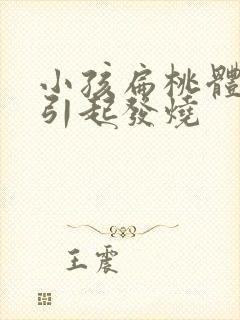 小孩扁桃體
引起發燒
王震